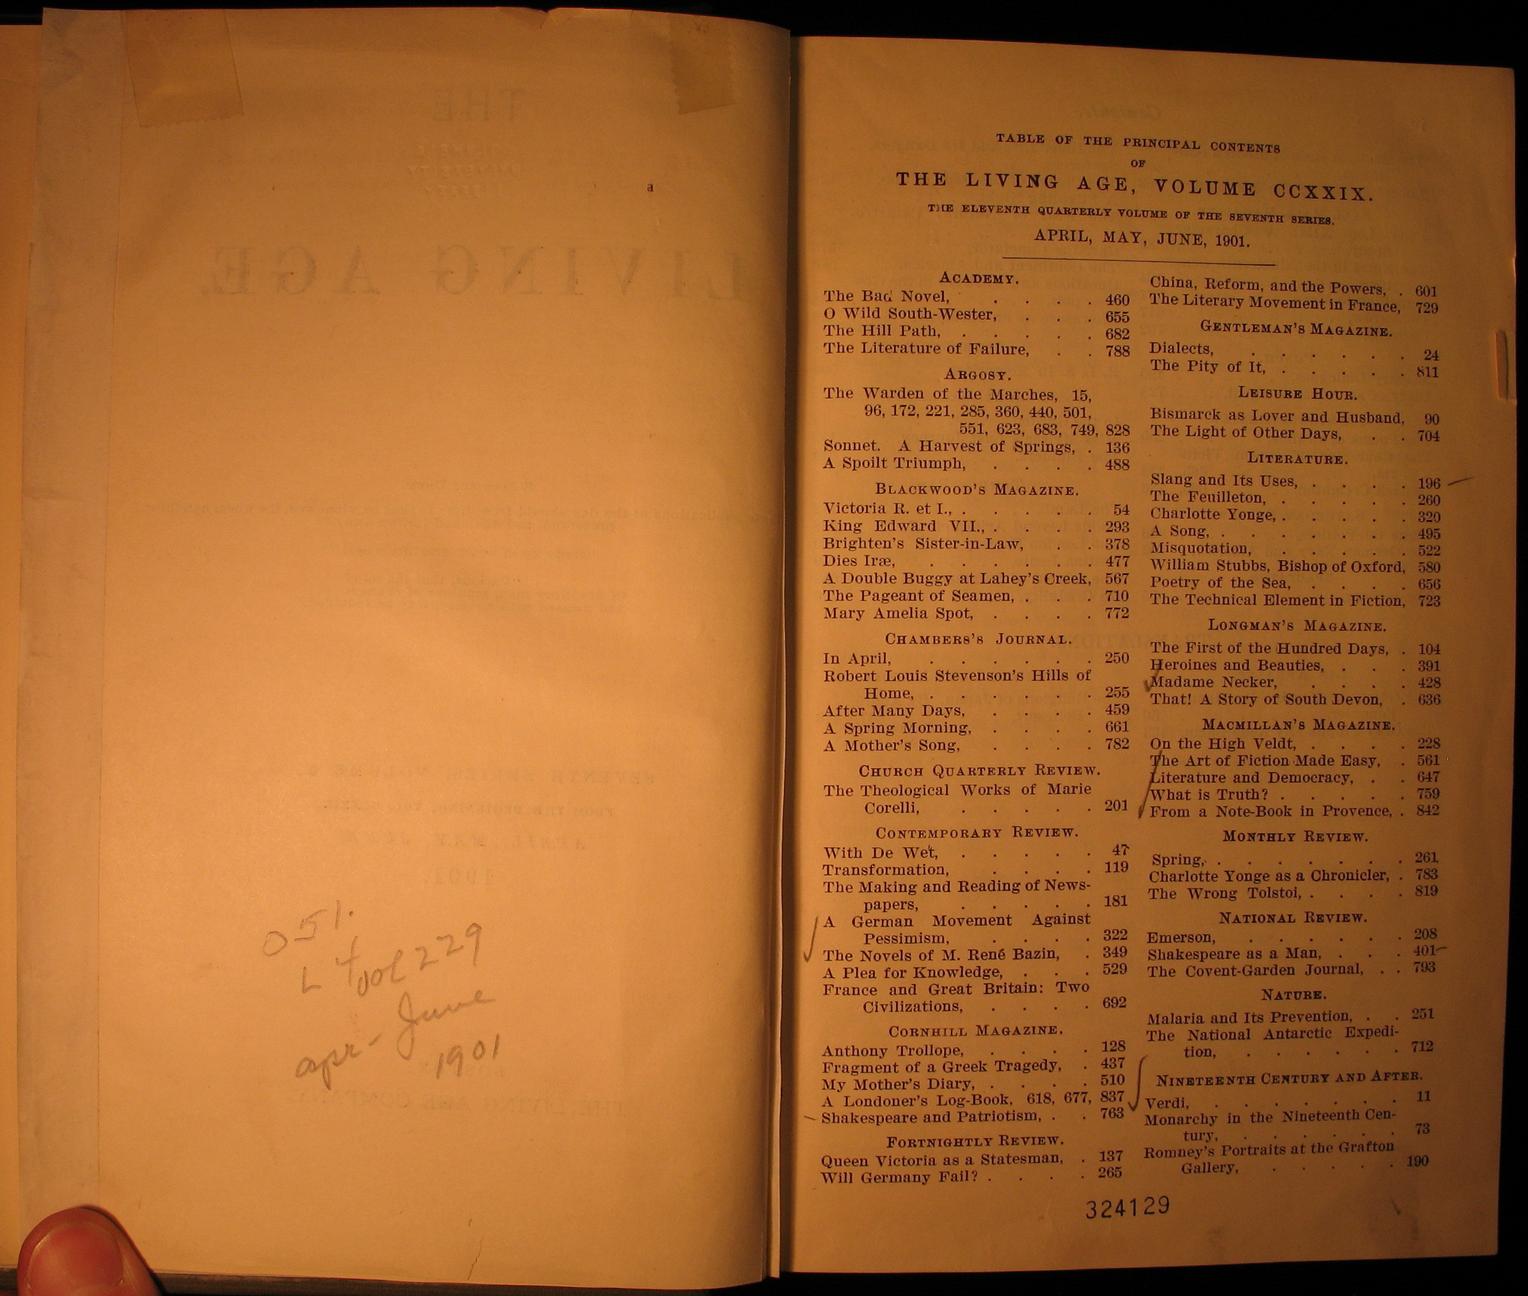 a
051.
L
vol 229
apr - June
1901
TABLE OF THE PRINCIPAL CONTENTS
OF
THE LIVING AGE, VOLUME CCXXIX.
THE ELEVENTH QUARTERLY VOLUME OF THE SEVENTH SERIES.
APRIL, MAY, JUNE, 1901.
ACADEMY.
The Bad Novel, . . . . 460
O Wild South-Wester, . . . 655
The Hill Path, . . . . . 682
The Literature of Failure, . . 788
ARGOSY.
The Warden of the Marches, 15,
96, 172, 221, 285, 360, 440, 501,
551, 623, 683, 749, 828
Sonnet. A Harvest of Springs, . 136
A Spoilt Triumph, . . . . 488
BLACKWOOD'S MAGAZINE.
Victoria R. et I., . . . . . 54
King Edward VII., . . . . 293
Brighten's Sister-in-Law, . . 378
Dies Iræ, . . . . . . 477
A Double Buggy at Lahey's Creek, 567
The Pageant of Seamen, . . . 710
Mary Amelia Spot, . . . . 772
CHAMBERS'S JOURNAL.
In April, . . . . . . 250
Robert Louis Stevenson's Hills of
Home, . . . . . . 255
After Many Days, . . . . 459
A Spring Morning, . . . . 661
A Mother's Song, . . . . 782
CHURCH QUARTERLY REVIEW.
The Theological Works of Marie
Corelli, . . . . . 201
CONTEMPORARY REVIEW.
With De Wet, . . . . . 47
Transformation, . . . . 119
The Making and Reading of News-
papers, . . . . . 181
A German Movement Against
Pessimism, . . . . 322
The Novels of M. René Bazin, . 349
A Plea for Knowledge, . . . 529
France and Great Britain: Two
Civilizations, . . . . 692
CORNHILL MAGAZINE.
Anthony Trollope, . . . . 128
Fragment of a Greek Tragedy, . 437
My Mother's Diary, . . . . 510
A Londoner's Log-Book, 618, 677, 837
Shakespeare and Patriotism, . . 763
FORTNIGHTLY REVIEW.
Queen Victoria as a Statesman, . 137
Will Germany Fail? . . . . 265
China, Reform, and the Powers, . 601
The Literary Movement in France, 729
GENTLEMAN'S MAGAZINE.
Dialects, . . . . . . 24
The Pity of It, . . . . . 811
LEISURE HOUR.
Bismarck as Lover and Husband, 90
The Light of Other Days, . . 704
LITERATURE.
Slang and Its Uses, . . . . 196
The Feuilleton, . . . . . 260
Charlotte Yonge, . . . . . 320
A Song, . . . . . . . 495
Misquotation, . . . . . 522
William Stubbs, Bishop of Oxford, 580
Poetry of the Sea, . . . . 656
The Technical Element in Fiction, 723
LONGMAN'S MAGAZINE.
The First of the Hundred Days, . 104
Heroines and Beauties, . . . 391
Madame Necker, . . . . 428
That! A Story of South Devon, . 636
MACMILLAN'S MAGAZINE.
On the High Veldt, . . . . 228
The Art of Fiction Made Easy, . 561
Literature and Democracy, . . 647
What is Truth? . . . . . 759
From a Note-Book in Provence, . 842
MONTHLY REVIEW.
Spring, . . . . . . . 261
Charlotte Yonge as a Chronicler, . 783
The Wrong Tolstoi, . . . . 819
NATIONAL REVIEW.
Emerson, . . . . . . 208
Shakespeare as a Man, . . . 401
The Covent-Garden Journal, . . 793
NATURE.
Malaria and Its Prevention, . . 251
The National Antarctic Expedi-
tion, . . . . . . 712
NINETEENTH CENTURY AND AFTER.
Verdi, . . . . . . . 11
Monarchy in the Nineteenth Cen-
tury, . . . . . . 73
Romney's Portraits at the Grafton
Gallery, . . . . . 190
324129